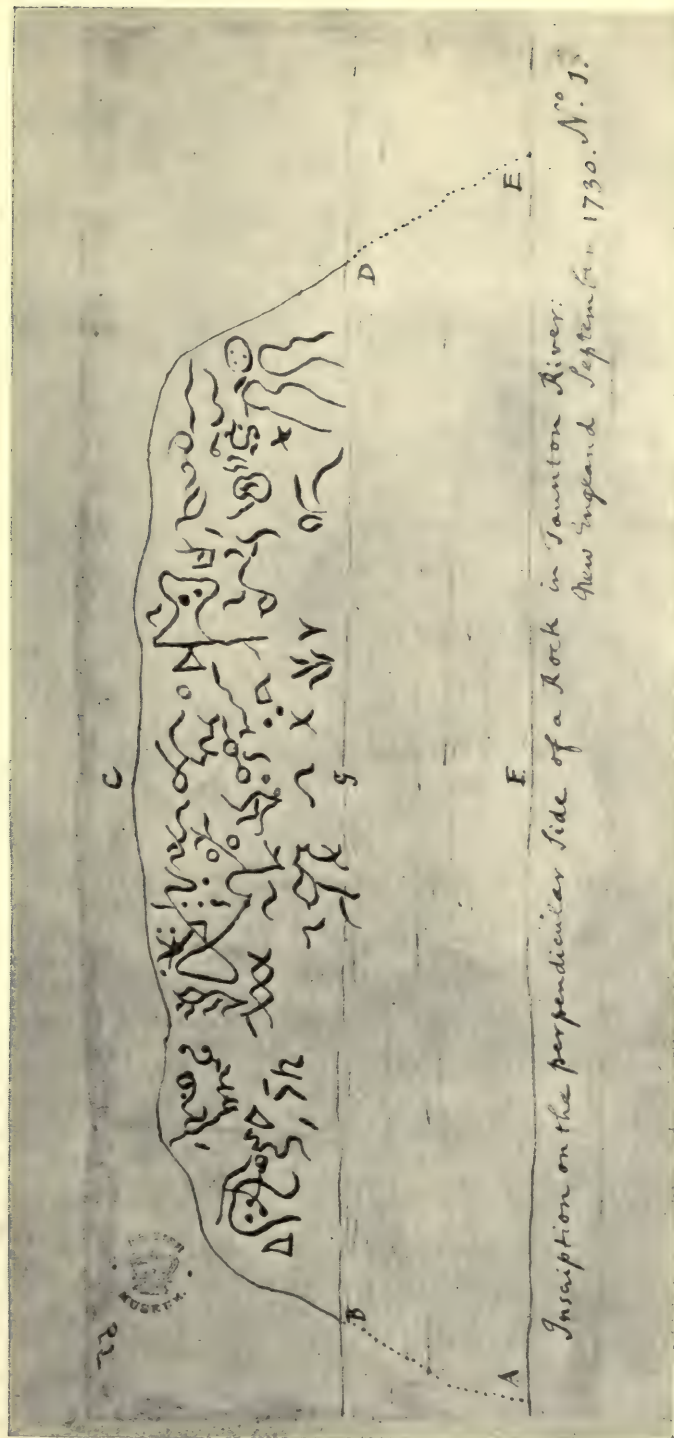 C
BRITISH MUSEUM
B G D
A F E
Inscription on the perpendicular side of a Rock in Taunton River.
New England September 1730. No. 1.